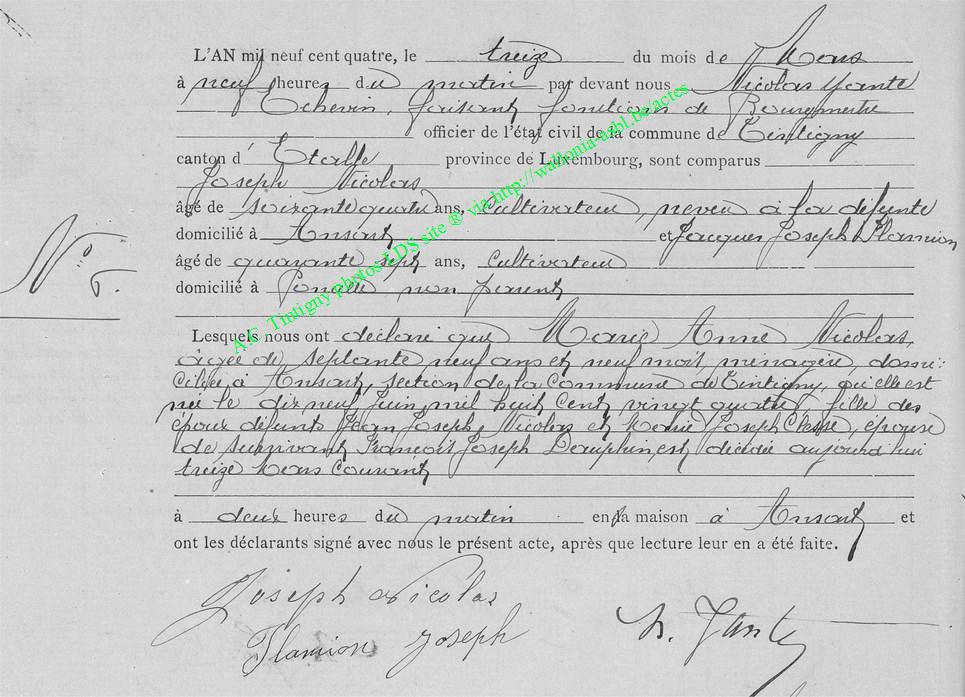 L'AN mil neuf cent quatre, le treize du mois de Mars
à neuf heures du matin par devant nous Nicolas Yante
Echevin, faisant fonctions de Bourgmestre
officier de l'état civil de la commune de Tintigny
canton d'Etalle province de Luxembourg, sont comparus
Joseph Nicolas
âgé de soixante quatre ans, cultivateur, neveu à la défunte
domicilié à Ansart et Jacques Joseph Flamion
âgé de quarante sept ans, cultivateur
domicilié à non parent
Nº 6.
Lesquels nous ont déclaré que Marie Anne Nicolas,
âgée de septante neuf ans et neuf mois, ménagère, domi-
ciliée à Ansart, section de la commune de Tintigny, où elle est
née le dix neuf Juin mil huit cent vingt quatre, fille des
époux défunts Jean Joseph Nicolas et Marie Joseph Clesse, épouse
de survivant François Joseph Dauphin, est décédée aujourd'hui
treize Mars courant
à deux heures du matin en sa maison à Ansart et
ont les déclarants signé avec nous le présent acte, après que lecture leur en a été faite.
Joseph Nicolas
Flamion Joseph
N. Yante
A.E. Tintigny Photos LDS site ® via http://wallonia-asbl.be/actes